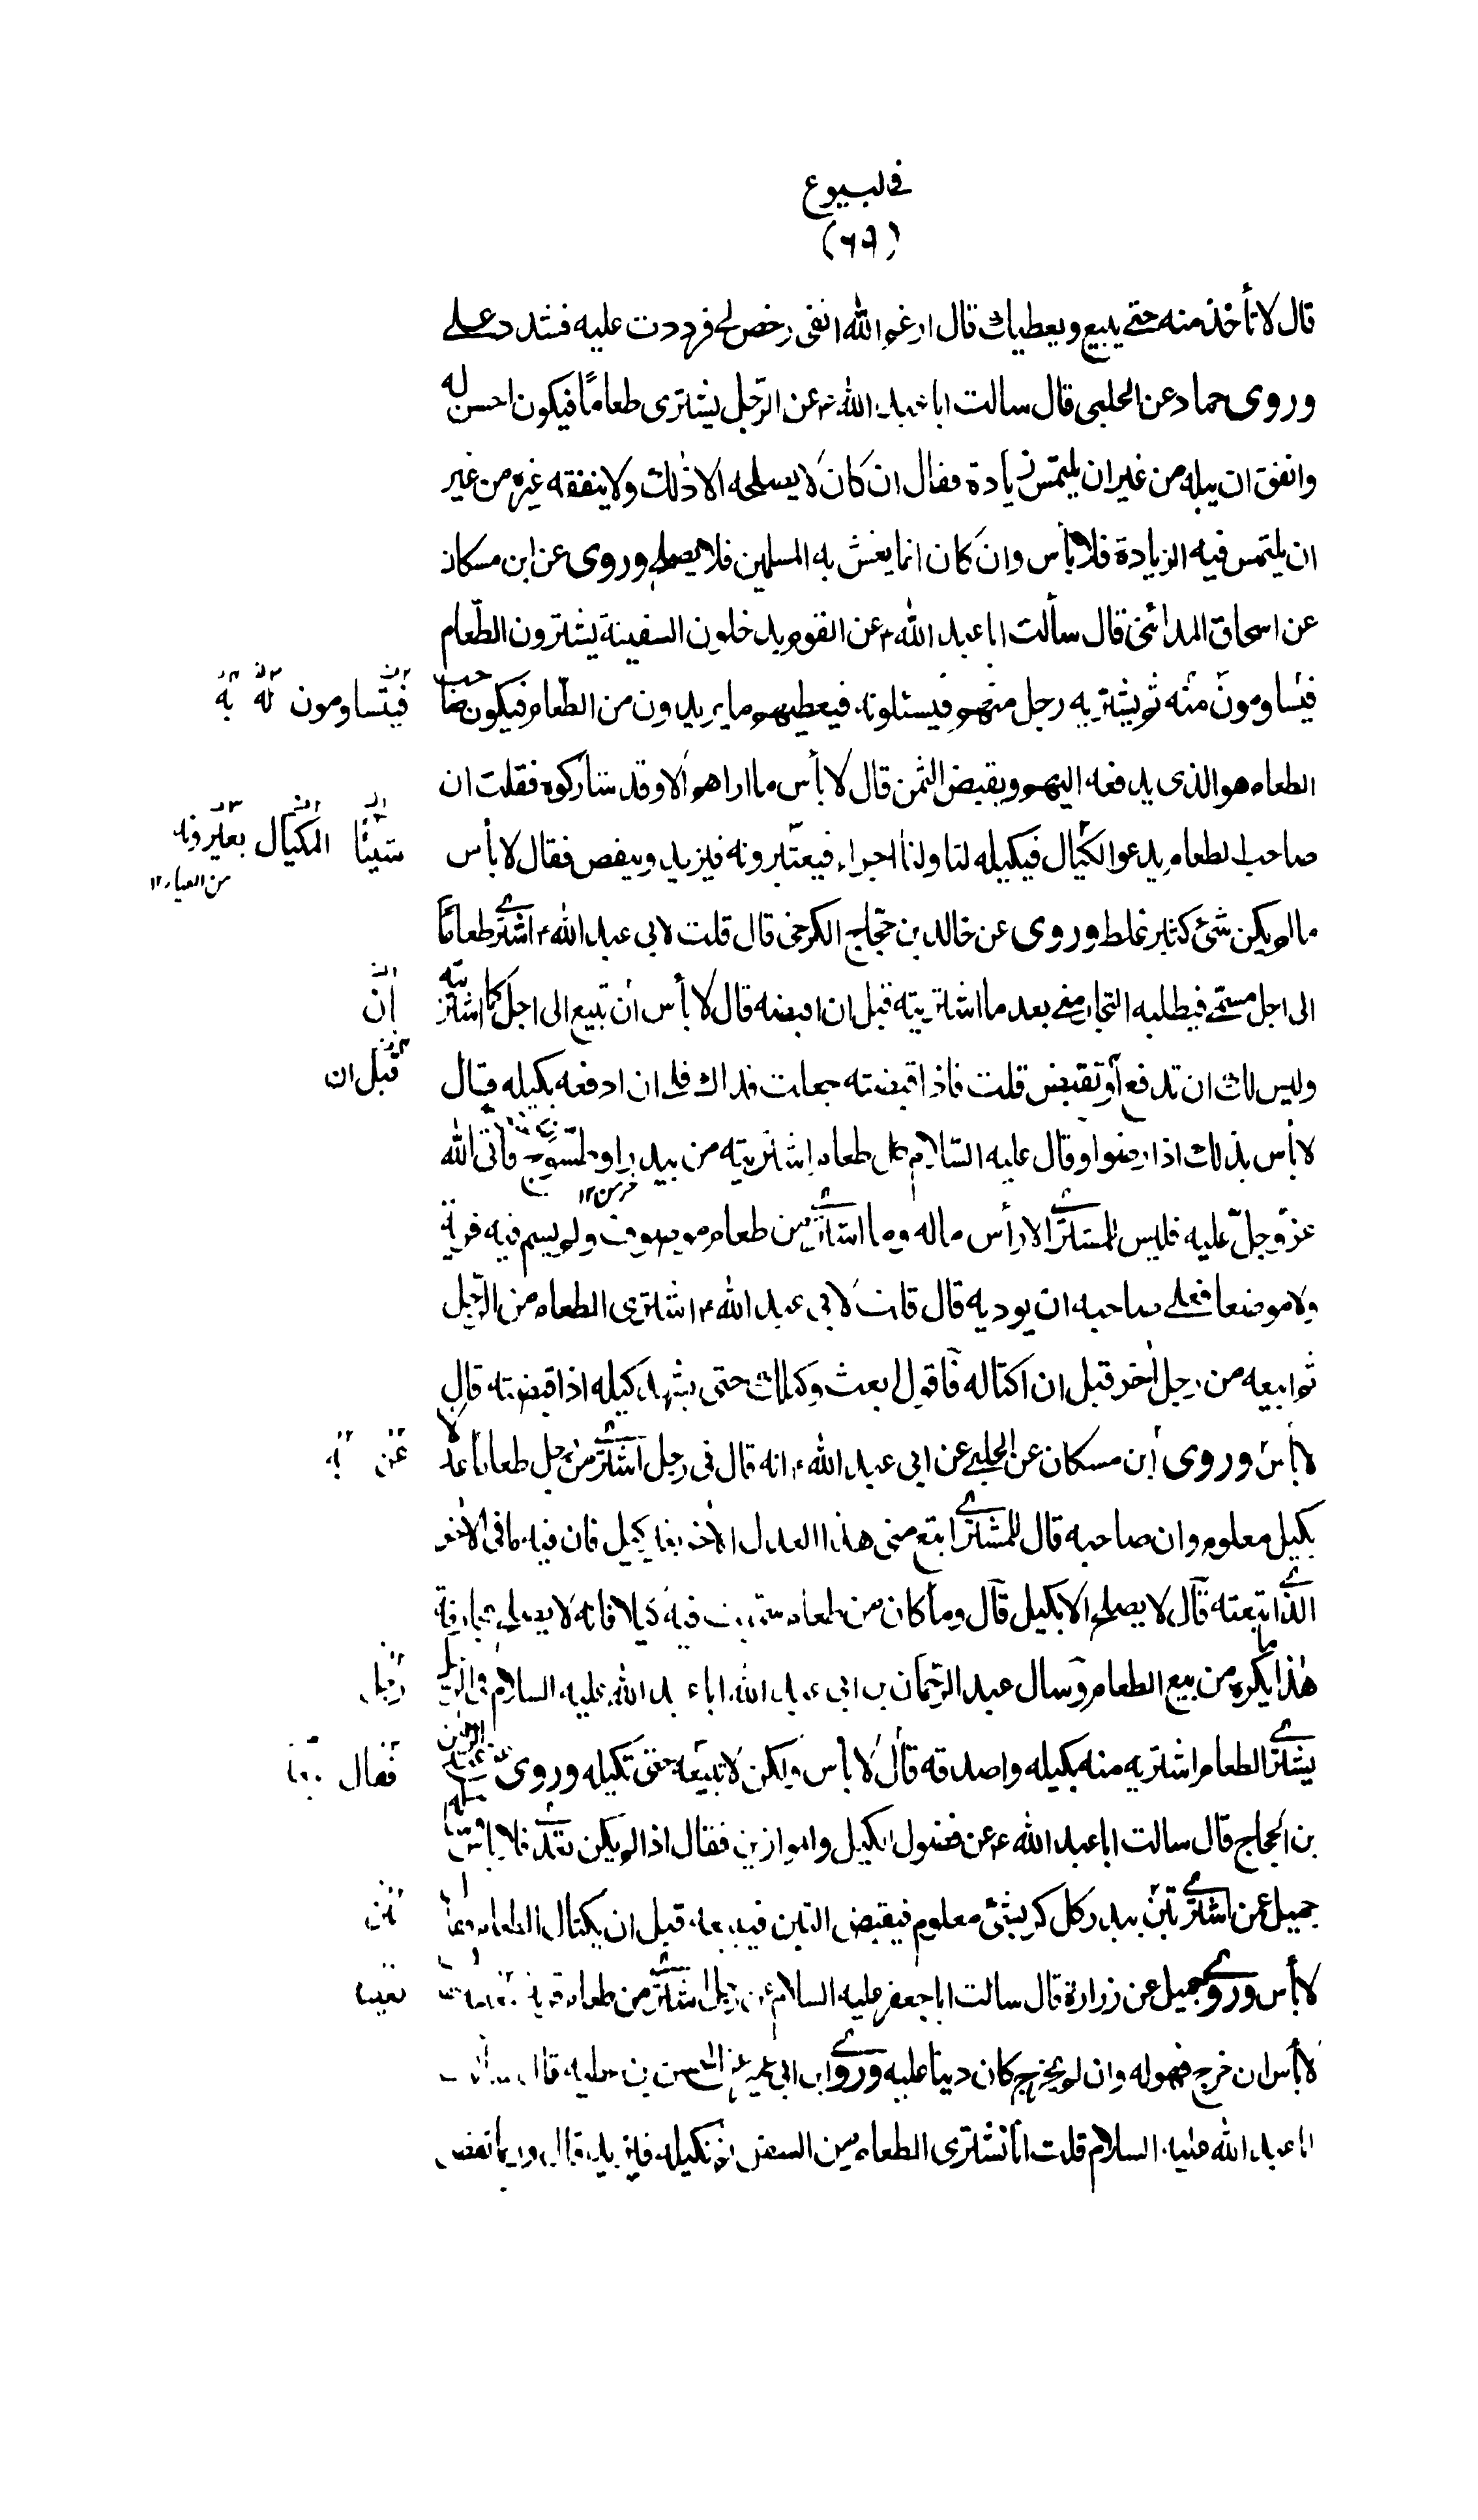 في البيوع
(٦٩)
قال لا تأخذ منه حتى يبيع ويعطيك قال ارغم الله انفى رخص لي فرددت عليه فشدد على
وروى حماد عن الحلبي قال سالت ابا عبد الله ع عن الرّجل يشترى طعامًا فيكون احسن له
وانفق ان يبله من غير ان يلتمس زيادة فقال ان كان لا يصلحه الا ذٰلك ولا ينفقه غيره من غير
ان يلتمس فيه الزيادة فلا بأس وان كان انما يغش به المسلمين فلا يصلح وروى عن ابن مسكان
عن اسحاق المدائني قال سألت ابا عبد الله ع عن القوم يدخلون السفينة يشترون الطّعام
فيتساومون منه ثم يشتريه رجل منهم فيسئلونه فيعطيهم ما يريدون من الطّعام فيكون صاحب
فيتساومون له به
الطعام هو الذى يدفعه اليهم ويقبض الثمن قال لا بأس ما اراهم الا وقد شاركوه فقلت ان
صاحب الطعام يدعو الكيّال فيكيله لنا ولنا اجراء فيعتبرونه فيزيد وينقص فقال لا بأس
شيئًا المكيال بعيرونه
من العيار ١٢
ما لم يكن شئ كثير غلط وروى عن خالد بن حجّاج الكرخى قال قلت لابى عبد الله ع اشترى طعامًا
الى اجل مسمّى فيطلبه التجار منى بعد ما اشتريته قبل ان اقبضه قال لا بأس ان تبيع الى اجل كما اشتريته
انّ
وليس لك ان تدفع او تقبض قلت فاذا قبضته جعلت فداك فلى ان ادفعه بكيله قال
قبل ان
لا بأس بذلك اذا رضوا وقال عليه السّلام كل طعام اشتريته من بيدر او طسّوج فأتى الله
خرمن ١٢
عزّ وجلّ عليه فليس للمشترى الا رأس ماله وما اشترى من طعام موصوف ولم يسم فيه قرية
ولا موضعا فعلى صاحبه ان يوديه قال قلت لابى عبد الله ع اشترى الطعام من الرّجل
ثم ابيعه من رجل اٰخر قبل ان اكتاله فاقول ابعث وكيلك حتى يشهد كيله اذا قبضته قال
لا بأس وروى ابن مسكان عن الحلبي عن ابى عبد الله ع انه قال فى رجل اشترى من رجل طعاما عدلا
عن به
بكيل معلوم وان صاحبه قال للمشترى ابتع منى هذا العدل الاٰخر بغير كيل فان فيه ما فى الاٰخر
الذى ابتعته قال لا يصلح الا بكيل قال وما كان من طعام سميت فيه كيلا فانه لا يصلح مجازفة
هٰذا ما يكره من بيع الطعام وسال عبد الرّحمان بن ابى عبد الله ابا عبد الله عليه السلام فى الرجل
رجل
يشترى الطعام اشتريه منه بكيله واصدقه قال لا بأس ولكن لا تبيعه حتى تكيله وروى عن عبد الرحمن
فقال
بن الحجاج قال سالت ابا عبد الله ع عن فضول الكيل والموازين فقال اذا لم يكن تعدّى فلا باس
جميل عن اشترى تبن بيدر كل كر بشئ معلوم فيقبض التبن فيبيعه قبل ان يكتال الطعام
لا بأس وروى جميل عن زرارة قال سالت ابا جعفر عليه السلام عن رجل اشترى من طعام قرية
لا بأس ان خرج فهو له وان لم يخرج كان دينا عليه وروى ابن ابى عمير عن الحسن بن عطيه قال
ابا عبد الله عليه السلام قلت انا نشترى الطعام من السفن ثم نكيله فيزيد قال وربما نقص